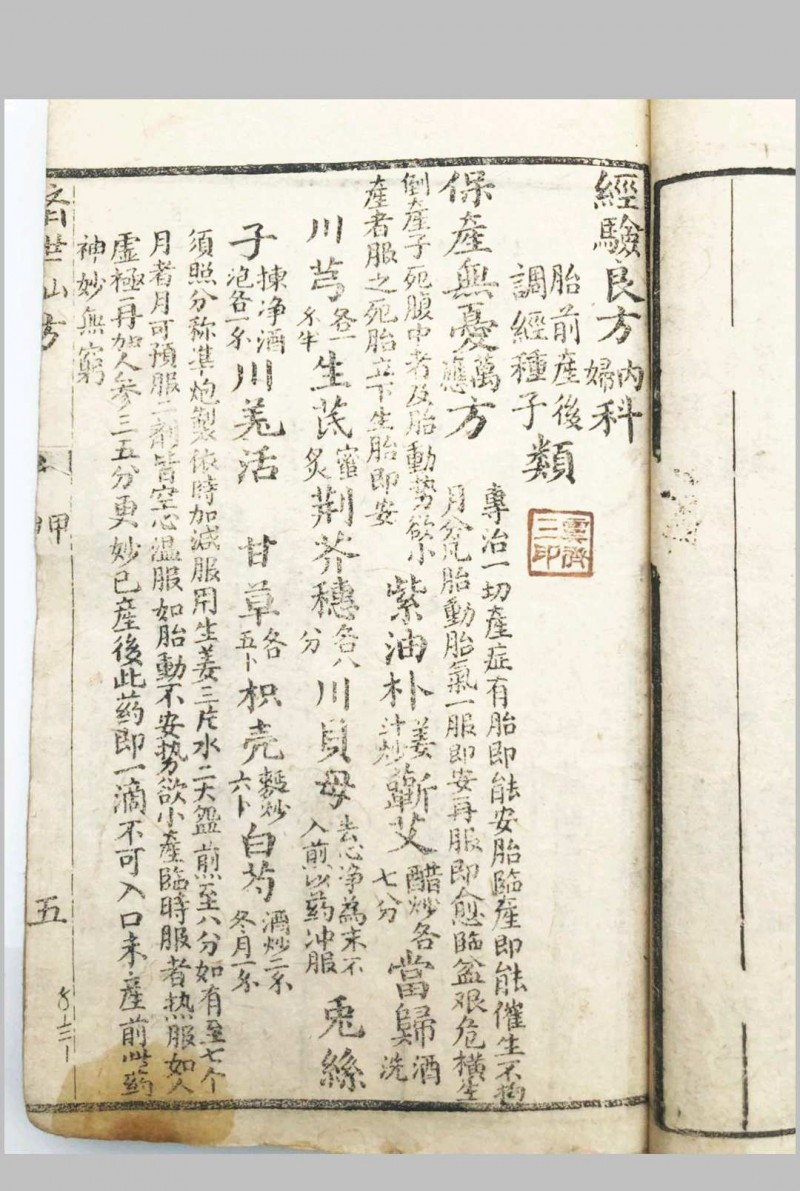 經驗良方 內婦科
胎前產後調經種子類
雲齋三印
保產無憂 萬應 方 專治一切產症有胎即能安胎臨產即能催生不拘
月分凡胎動胎氣一服即安再服即愈臨盆艰危橫生
倒產子死腹中者及胎動势欲小
產者服之死胎立下生胎即安
紫油朴 姜汁炒 蕲艾 醋炒各七分 當歸 酒洗
川芎 各一 半 生芪 蜜炙 荆芥穗 各八分 川貝母 去心净為末不入煎以药冲服 兎絲
子 揀净酒泡各一 川羌活 甘草 各五卜 枳壳 麸炒六卜 白芍 酒炒二 冬月一
須照分称準炮製依時加減服用生姜三片水二大盌煎至八分如有至七个
月者月可預服二劑皆空心温服如胎動不安势欲小產臨時服者热服如人
虚極再加人参三五分更妙已產後此药即一滴不可入口未產前此药
神妙無窮
濟世仙方
甲
五